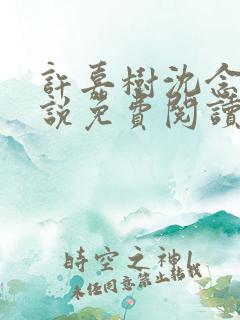 許嘉樹沈念
說免費閱讀
時空之神l
未經同意禁止轉載